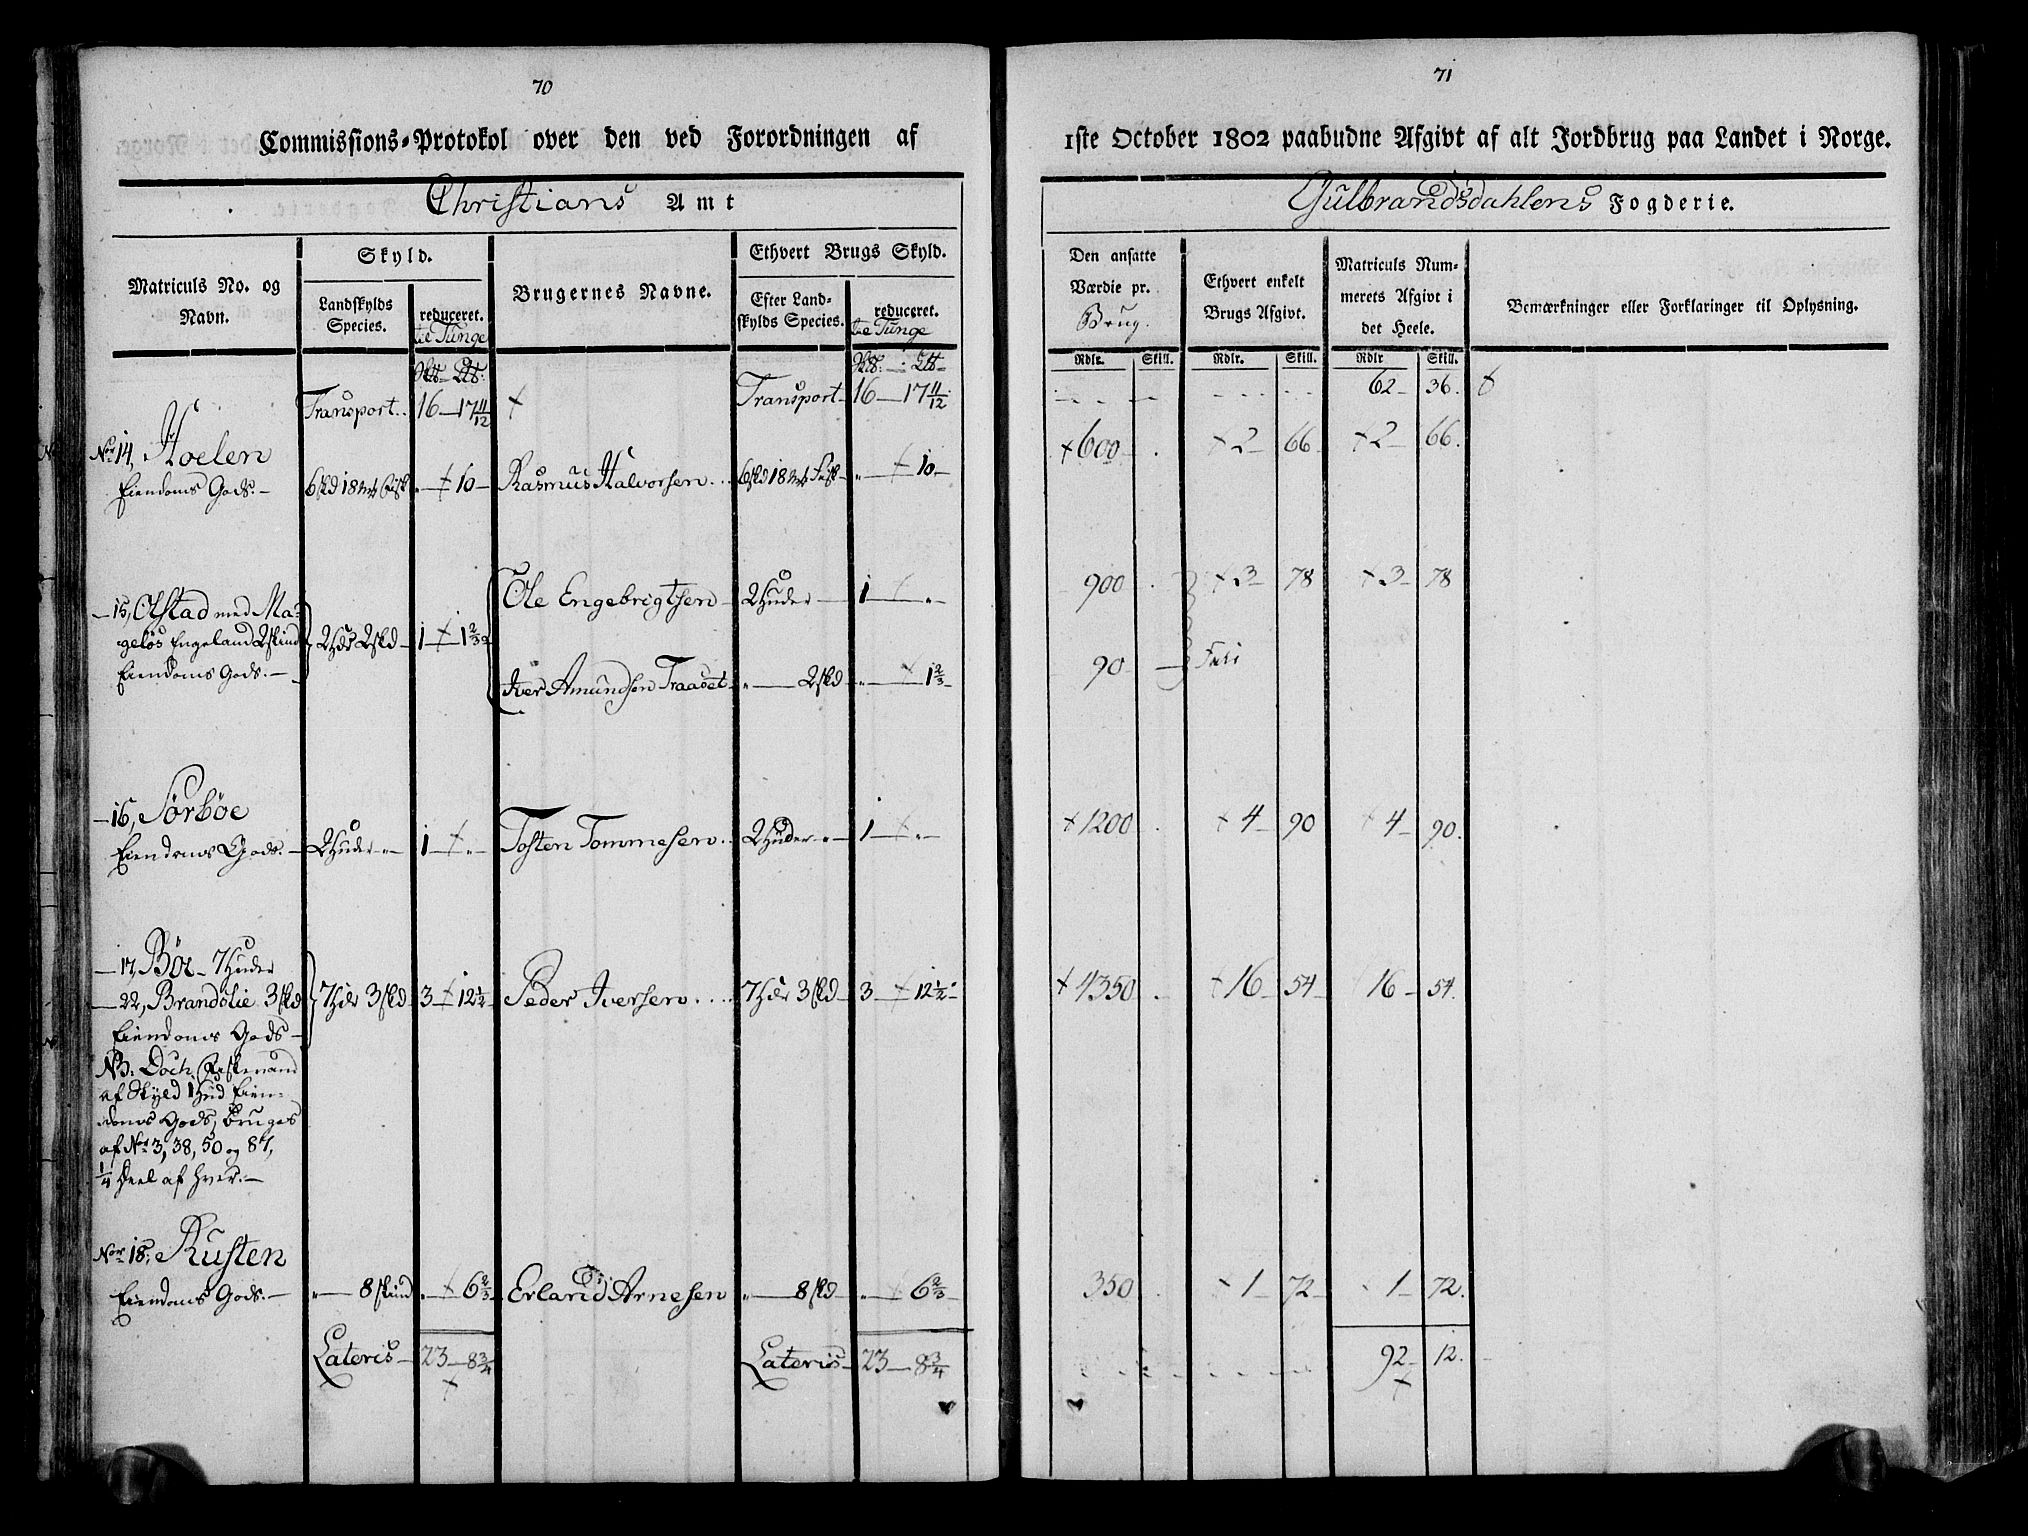 70
Commissions-Protokol over den ved Forordningen af
Christians Amt
Matriculs No. og Navn.
Skyld.
Landskylds Species.
reduceret.
til Tunge
Brugernes Navne.
Ethvert Brugs Skyld.
Efter Landskylds Species.
reduceret.
til Tunge
Transport.. 16 — 17 11/12 Transport — 16 — 17 11/12
No 14, Hoelen
Eiendoms Gods. — 6 skd 18 mk Fisk „ — 10 — Rasmus Halvorsen... 6 skd 18 mk Fisk — „ — 10 —
Ole Engebrigtsen — 2 Huder — 1 — „ —
— 15, Olstad med Ma-
geløs Engeland 2 skind 2 Hdr 2 skd — 1 — 1 2/3
Eiendoms Gods. —
Iver Amundsen Traaset „ — 2 skd — „ — 1 2/3 —
— 16, Sørbøe
Eiendoms Gods. — 2 Huder „ — 1 — „ — Tosten Tommesen.. 2 Huder „ — 1 — „ —
— 17, Bøe — 7 Huder
— 22, Brandslie 3 skd 7 Hdr 3 skd 3 — 12 1/2 — Peder Iversen.... 7 Hdr 3 skd — 3 — 12 1/2 —
Eiendoms Gods —
NB: Doch
af Skyld 1 Hud Eien-
doms Gods, bruges
af No 3, 38, 50 og 87,
1/4 Deel af hver. —
No 18, Rusten
Eiendoms Gods. — „ — 8 skind „ — 6 2/3 Erland Arnesen „ — 8 skd — „ — 6 2/3 —
Lateris — 23 — 8 3/4 Lateris — 23 — 8 3/4
71
1ste October 1802 paabudne Afgivt af alt Jordbrug paa Landet i Norge.
Gulbrandsdahlens Fogderie.
Den ansatte Værdie pr.
Brug.
Ethvert enkelt Brugs Afgivt.
Matriculs Nummerets Afgivt i det Heele.
Bemærkninger eller Forklaringer til Oplysning.
Rdlr. Skill. Rdlr. Skill. Rdlr Skill.
62 — 36.
600 . 2 — 66 2 — 66.
900 . 3 — 78 3 — 78
90 —
1200 . 4 — 90 4 — 90.
4350 . 16 — 54 — 16 — 54.
350 . 1 — 72 — 1 — 72.
92 — 12.